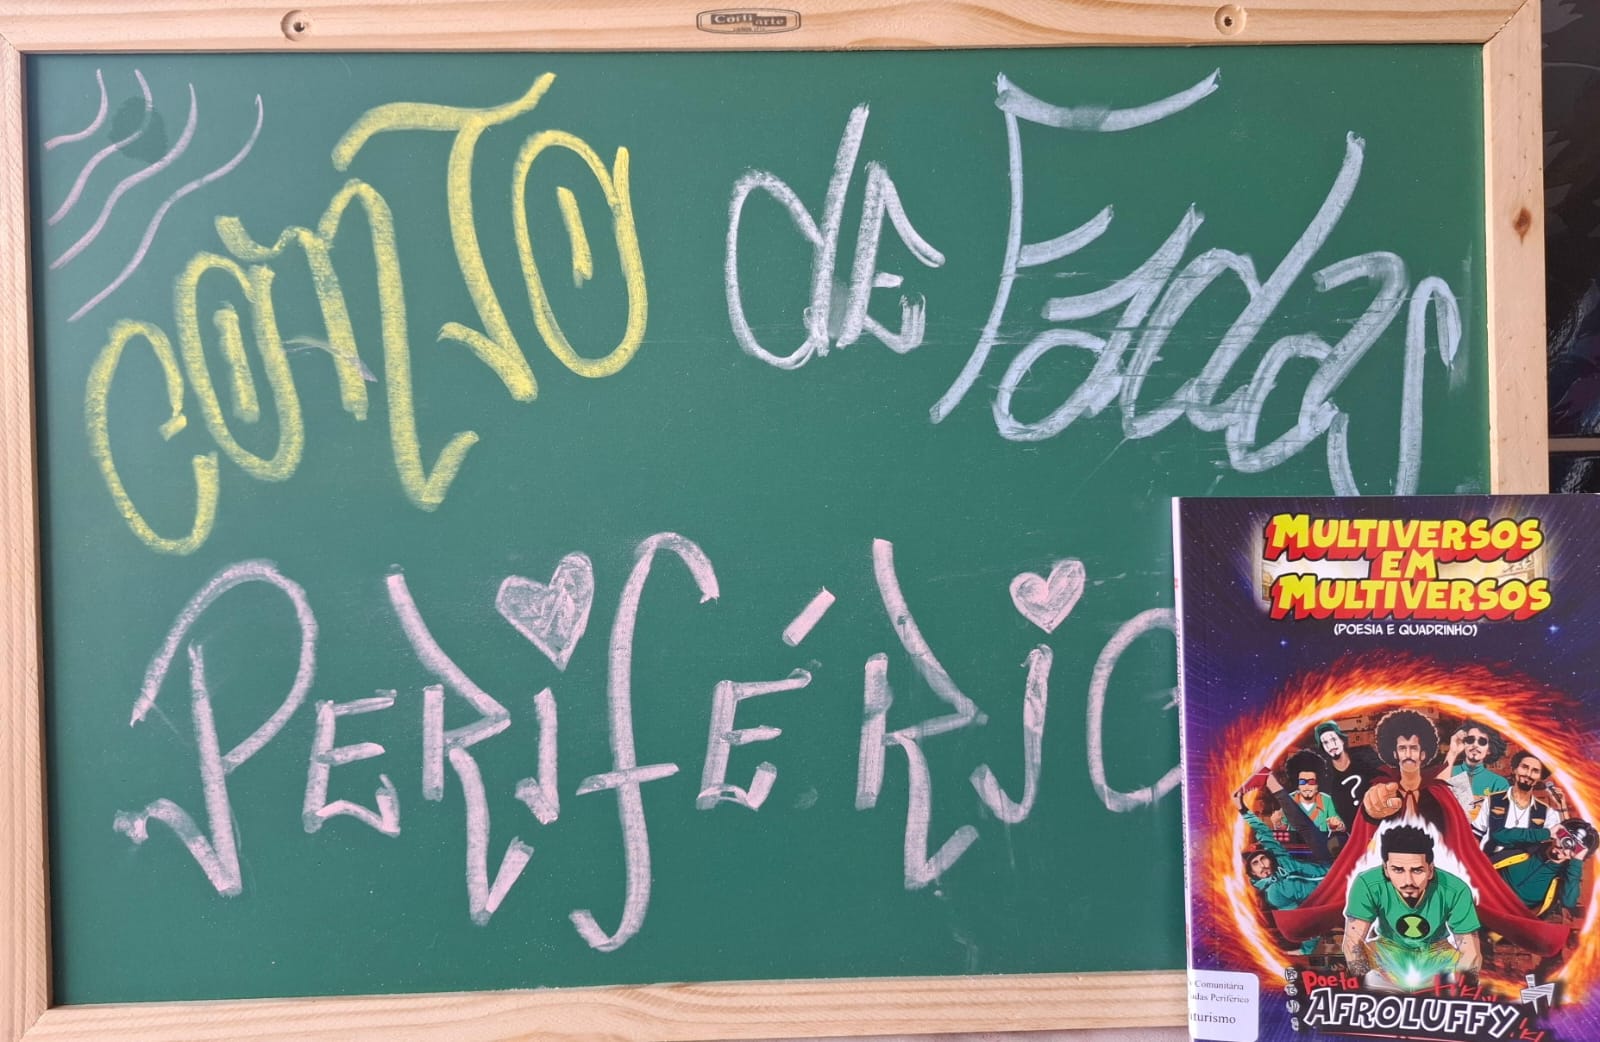 Corti arte
CONTO de Fadas
PERIFÉRIC
MULTIVERSOS
EM
MULTIVERSOS
(POESIA E QUADRINHO)
?
Poeta
AFROLUFFY
Comunitária
adas Periférico
turismo